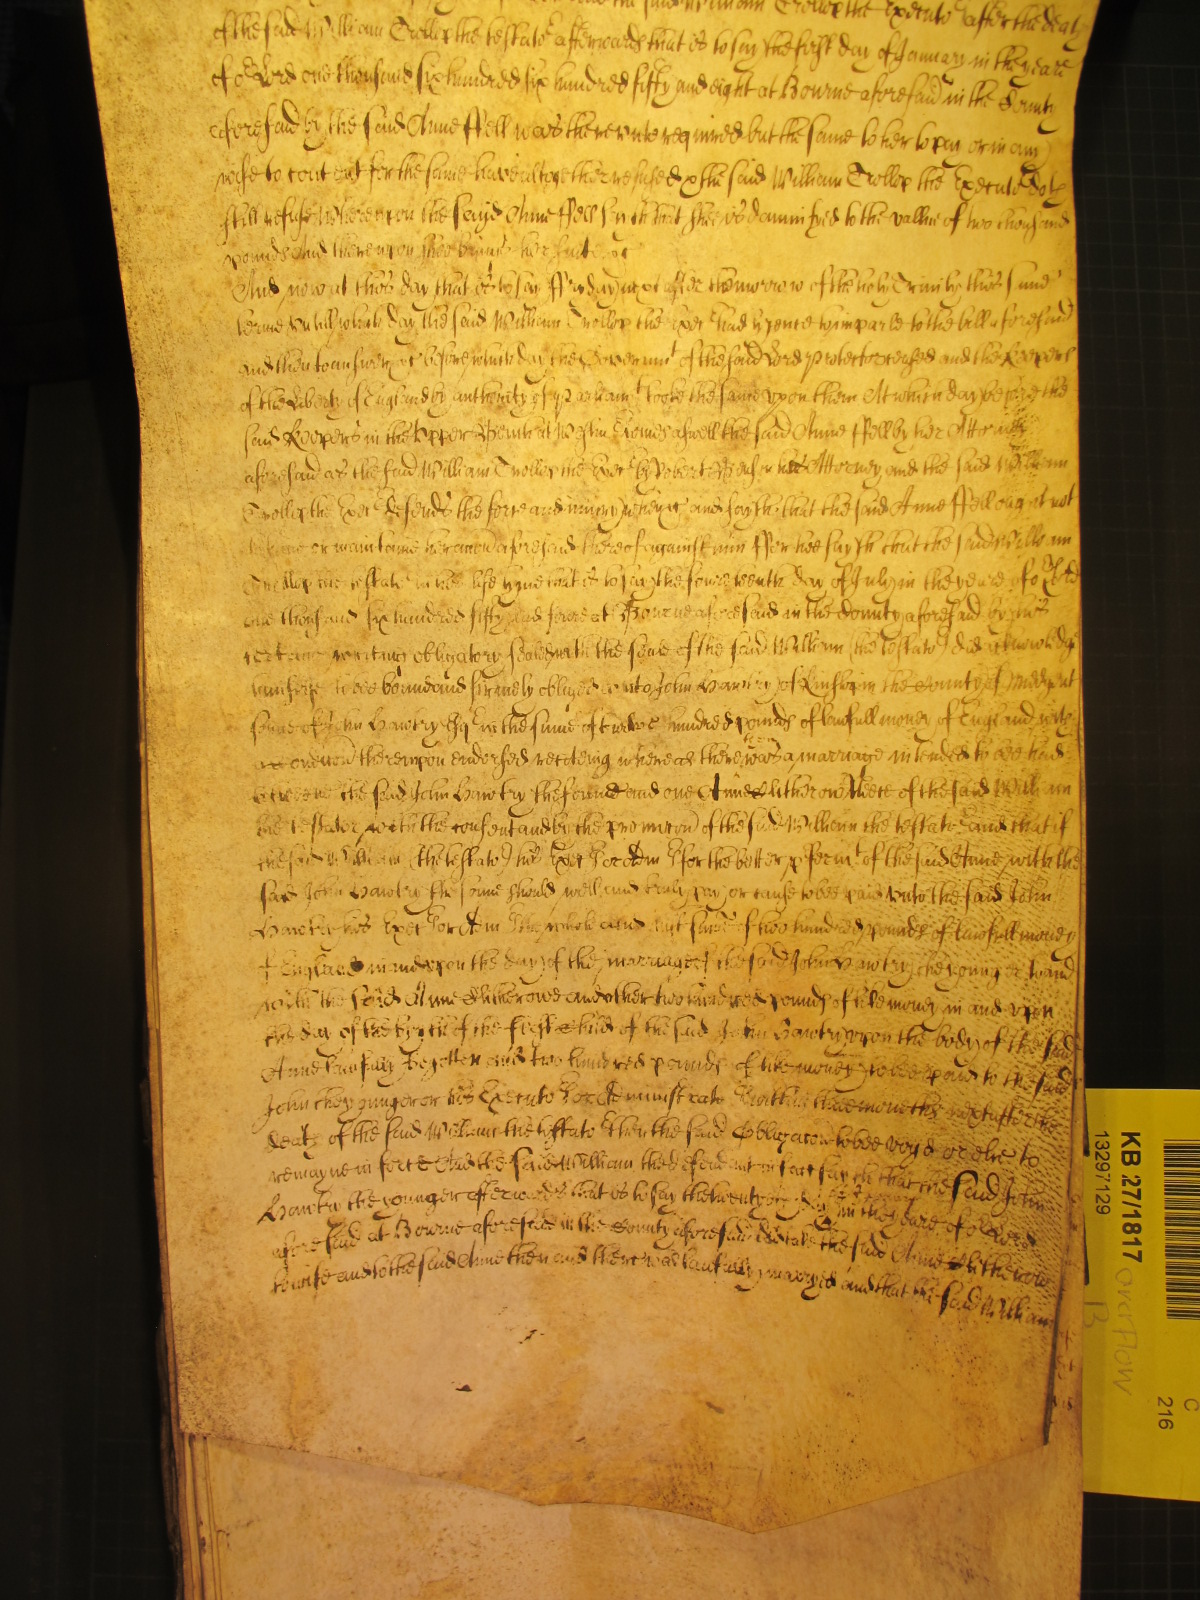 the said William Trollop the Executo.r after the death
of the said William Trollop the testato.r afterwards that is to say the first day of January in the yeare
of o.r Lord one thousand six hundred six hundred fifty and eight at Bourne aforesaid in the County
aforesaid by the said Anne ffell was thereunto required but the same to her to pay or in any
wise to content for the same have altogether refused & the said William Trollop the Executo.r doth
still refuse Whereupon the sayd Anne ffell saith that shee is damnifyed to the vallue of two thousand
pounds And thereupon shee brings her suite &c
And now at this day that is to say ffryday next after the morrow of the holy Trinity this same
terme vntill which day the said William Trollop the Exec.r had lycence to imparle to the bill aforesaid
and then to answer &c before which day the Governm.t of the said Lord protector ceased and the Keepers
of the Liberty of England by authority of parliam.t tooke the same vpon them At which day before the
said Keepers in the Vpper Bench at Westm.r Comes aswell the said Anne ffell by her Attorney
aforesaid as the said William Trollop the Exec.r by Robert his Attorney and the said William
Trollop the Exec.r defends the force and iniury when &c and sayth that the said Anne ffell ought not
to have or maintaine her accon aforesaid thereof against him ffor hee sayth that the said William
Trollop the testato.r in his life tyme that is to say the fourteenth day of July in the yeare of o.r Lord
one thousand six hundred fifty and foure at Bourne aforesaid in the County aforesaid by his
certaine writing obligatory sealed with the seale of the said William (the testato.r) did acknowledge
himselfe to bee bound and firmely obliged vnto John Hawtry of Rislipp in the County of Midd gent
sonne of John Hawtry Esq.r in the sume of twelve hundred pounds of lawfull money of England with
a condicon therevpon endorsed reciteing whereas there was a marriage intended to bee had
betweene the said John Hawtry the sonne and one Anne Clitherow Neece of the said William
the testator with the consent and by the promocon of the said William the testato.r And that if
the said William (the testato.r) his Exec.rs or Adm.rs for the better pferm.t of the said Anne with the
said John Hawtry the sonne should well and truly pay or cause to bee paid vnto the said John
Hawtry his Exec.rs or Adm.rs the whole and iust sume of two hundred pounds of lawfull money
of England in and vpon the day of the marriage of the said John Hawtry the younger to and
with the said Anne Clitherowe and other two hundred pounds of like money in and vpon
the day of the byrth of the first Child of the said John Hawtry vpon the body of the said
Anne lawfully begotten and two hundred pounds of like money to bee paid to the said
John the younger or his Executo.rs or Administrato.rs within three moneths next after the
death of the said William the testato.r then the said Obligacon to bee voyd or else to
remayne in force And the said William the defendant in fact sayth that the said John
Hawtry the younger afterwards that is to say the twenty day in the yeare of o.r Lord
aforesaid at Bourne aforesaid in the County aforesaid did take the said Anne Clitherow
to wife and to the said Anne then and there was lawfully marryed and that the said William
KB 27/1817
13297129
overflow
B
C
216